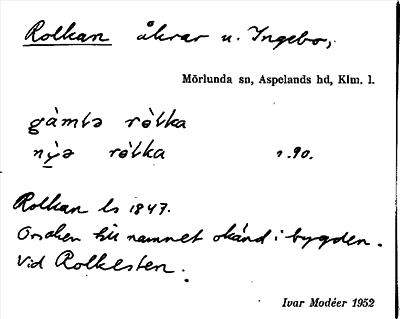 Rolkan åkrar u. Ingebo,
Mörlunda sn, Aspelands hd, Klm. l.
gàmlə ròlka
nỳə ròlka s. 90.
Rolkan ls 1847.
Orsaken till namnet okänd i bygden.
Vid Rolkesten.
Ivar Modéer 1952